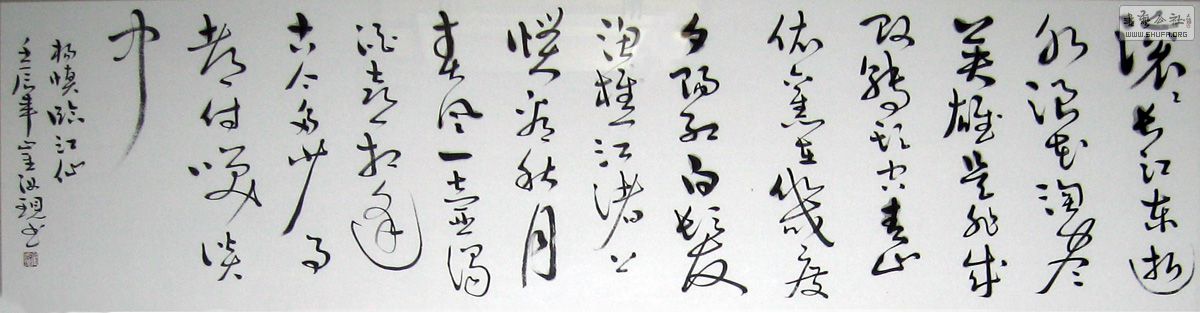 滚〻长江东逝
水浪花淘尽
英雄是非成
败转头空青山
依旧在几度
夕阳红白发
渔樵江渚上
惯看秋月
春风一壶浊
酒喜相逢
古今多少事
都付笑谈
中
杨慎临江仙
壬辰年
WWW.SHUFA.ORG